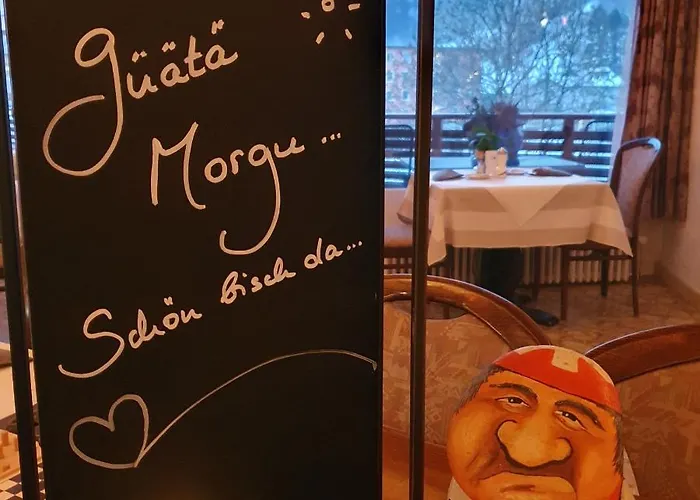 güätä
Morgu...
Schön bisch da...